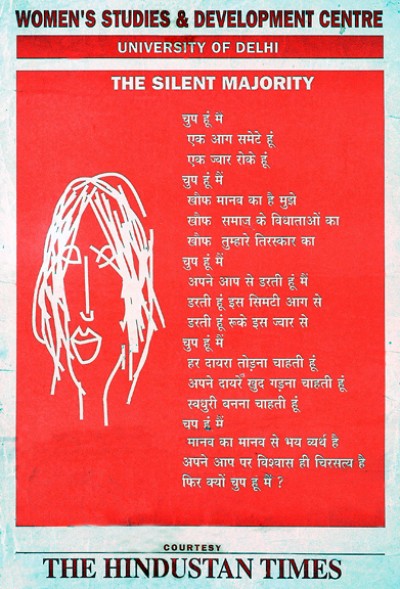 WOMEN'S STUDIES & DEVELOPMENT CENTRE
UNIVERSITY OF DELHI
THE SILENT MAJORITY
चुप हूं मैं
एक आग समेटे हूं
एक ज्वार रोके हूं
चुप हूं मैं
खौफ मानव का है मुझे
खौफ समाज के विधाताओं का
खौफ तुम्हारे तिरस्कार का
चुप हूं मैं
अपने आप से डरती हूं मैं
डरती हूं इस सिमटी आग से
डरती हूं रूके इस ज्वार से
चुप हूं मैं
हर दायरा तोड़ना चाहती हूं
अपने दायरें खुद गड़ना चाहती हूं
स्वधुरी बनना चाहती हूं
चप हूं मैं
मानव का मानव से भय व्यर्थ है
अपने आप पर विश्वास ही चिरसत्य है
फिर क्यों चुप हूं मैं ?
COURTESY
THE HINDUSTAN TIMES